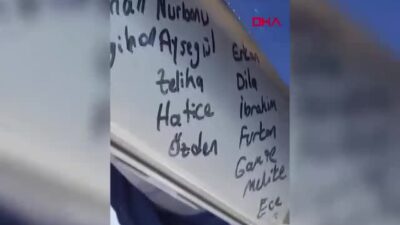 DHA
Nurbanu
Ayşegül
Zeliha
Hatice
Özden
Erkan
Dila
İbrahim
Furkan
Gamze
Melike
Ece